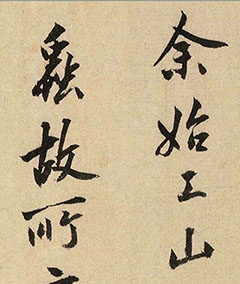 余始工山
蠡故所